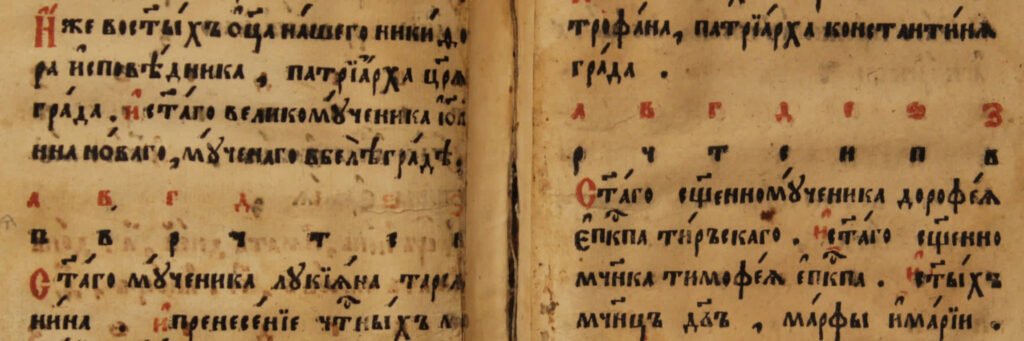 и҆́же во ст҃ы́хъ ѻ҆ц҃а̀ на́шегѡ ники́фо
ра и҆сповѣ́дника, патрїа́рха цр҃ѧ
гра́да. и҆ ст҃а́го великомꙋ́ченика і҆ѡа́
нна но́ваго, мꙋ́ченаго в бѣлѣ́гра́дѣ.
а в г д з
п в р ч т с н
Ст҃а́го мꙋ́ченика лꙋкїѧ́на тарсѧ
ни́на. и҆ пренесе́нїе чт҃ны́хъ мо
трофа́на, патрїа́рха константи́нѧ
гра́да.
а в г д е ѕ з
р ч т с н п в
Ст҃а́го сщ҃енномꙋ́ченика дорофе́ѧ
є҆пк҃па ти́рьскаго. и҆ ст҃а́го сщ҃енно
мч҃нка тимофе́ѧ є҆пк҃па. и҆ ст҃ы́хъ
мч҃нцъ дв҃ъ, ма́рфы и҆ марі́и.